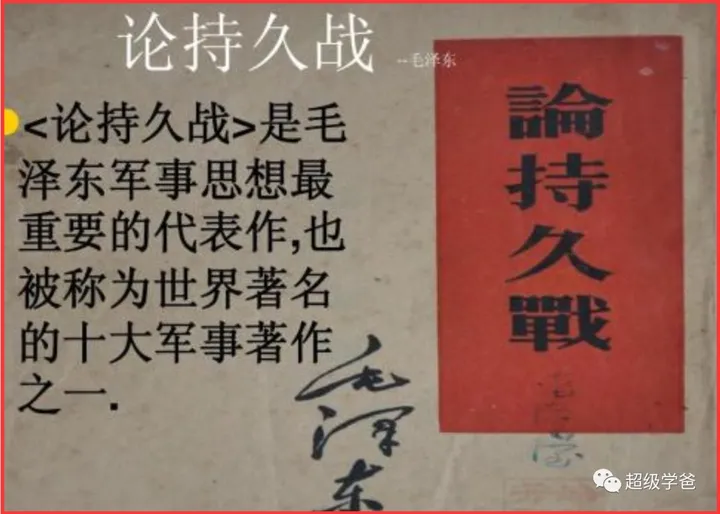 论持久战 --毛泽东
<论持久战>是毛
泽东军事思想最
重要的代表作,也
被称为世界著名
的十大军事著作
之一.
論持久戰
毛泽东
超级学爸